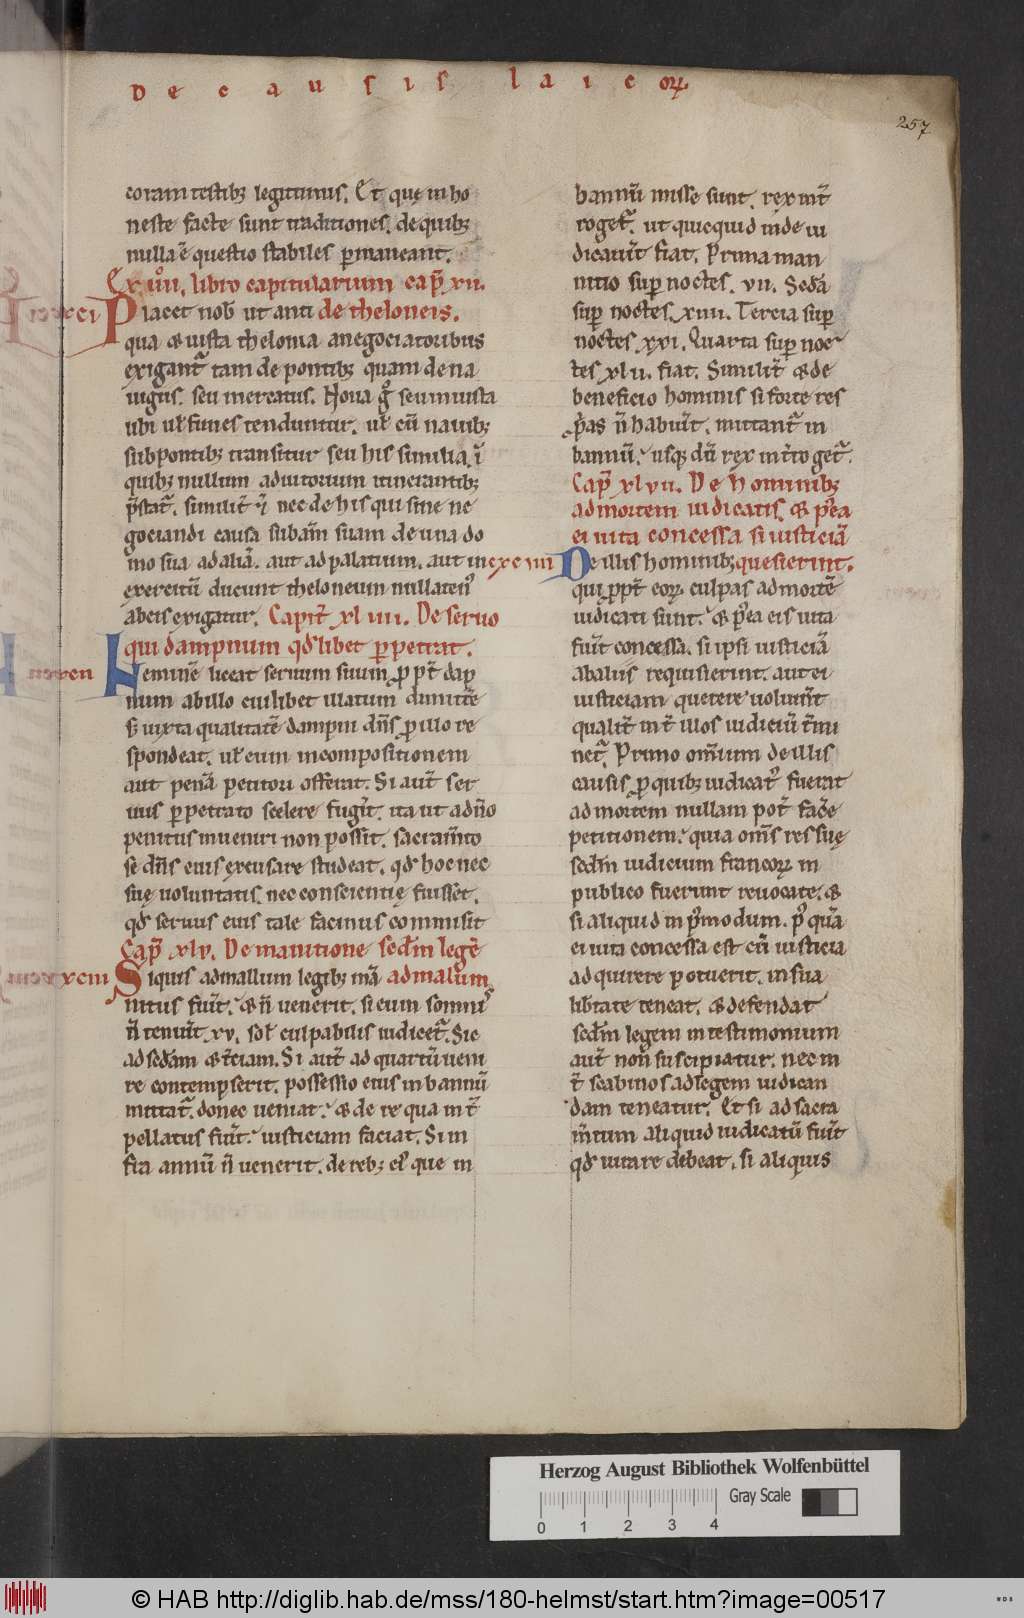 De causis laicoꝝ.
257
coram testibꝫ legitimis. Et quę inho
neste facte sunt traditiones. de quibꝫ
nulla ē questio stabiles ꝑmaneant.
libro capitularium cap̄ xii.
xci
Placet nob̄ ut anti de theloneis.
qua & iusta thelonia anegociatoribus
exigant̄ tam de pontibꝫ quam de na
uigiis. seu mercatis. Noua g̊ seu iniusta
ubi uł funes tenduntur. uł cū nauibꝫ
sub pontibꝫ transitur seu his similia. ī
quibꝫ nullum adiutorium itinerantibꝫ
p̄stat̄. similit̄ nec de his qui sine ne
gociandi causa subām suam de una do
mo sua ad aliā. aut ad palatium. aut in
exercitū ducunt theloneum nullaten᾽
ab eis exigatur. Capit̄ xl iiii. De seruo
qui dampnum qđ libet ꝑpetrat.
xcii
Nemini liceat seruum suum ꝓpt̄ dāp
num ab illo cuilibet illatum dimitt̄e
s; iuxta qualitatē dampni dn̄s ꝓ illo re
spondeat. uł eum in compositionem
aut penā petitori offerat. Si aut̄ ser
uus ꝑpetrato scelere fugit̄. ita ut ad n̄o
penitus inueniri non possit. sacram̄to
se dn̄s eius excusare studeat. qđ hoc nec
suę uoluntatis. nec conscientię fuisset.
qđ seruus eius tale facinus commisit
Cap̄ xlv. De manitione sedm̄ legē
xciii
Siquis ad mallum legibꝫ mā ad malum.
nitus fuit̄. & n̄ uenerit. si eum somni᾽
n̄ tenuit̄ xv. soł culpabilis iudicet̄. Sic
ad sedām & t̄ciam. Si aut̄ ad quartū ueni
re contempserit. possessio eius in bannū
mittat̄. donec ueniat. & de re qua int̄
pellatus fuit̄. iusticiam faciat. Si in
fra annū n̄ uenerit. de rebꝫ ei᾽ que in
bannū misse sunt. rex int̄
roget̄. ut quicquid inde iu
dicauit̄ fiat. Prima man
nitio sup̄ noctes. vii. Sedā
sup̄ noctes xiiii. Tercia sup̄
noctes xxi. Quarta sup̄ noc
tes xlii. fiat. Similit̄ & de
beneficio hominis si forte res
ꝓp̄as n̄ habuit̄. mittant̄ in
bannū. usqꝫ dū rex int̄roget̄.
Cap̄ xlvii. De hominibꝫ
ad mortem iudicatis. & p᾽ea
ei uita concessa si iusticiā
xc iiii
De illis hominibꝫ quesierint.
qui ꝓpt̄ eoꝝ culpas ad mortē
iudicati sunt. & p᾽ea eis uita
fuit̄ concessa. si ipsi iusticiā
ab aliis requisierint. aut ei
iusticiam querere uoluint̄
qualit̄ int̄ illos iudiciū t̄mi
net̄. Primo om̄ium de illis
causis ꝓ quibꝫ iudicat᾽ fuerat
ad mortem nullam pot̄ fac̄e
petitionem. quia om̄s res suę
sedm̄ iudicium francoꝝ in
publico fuerunt reuocate. &
si aliquid in p᾽mo dum. p᾽ quā
ei uita concessa est cū iusticia
adquirere potuerit. in sua
lib̄tate teneat. & defendat
sedm̄ legem in testimonium
aut̄ non suscipiatur. nec in
t̄ scabinos ad legem iudican
dam teneatur. Et si ad sacra
m̄tum aliquid iudicatū fuit̄
qđ iurare debeat. si aliquis
Herzog August Bibliothek Wolfenbüttel
Gray Scale
0 1 2 3 4
© HAB http://diglib.hab.de/mss/180-helmst/start.htm?image=00517